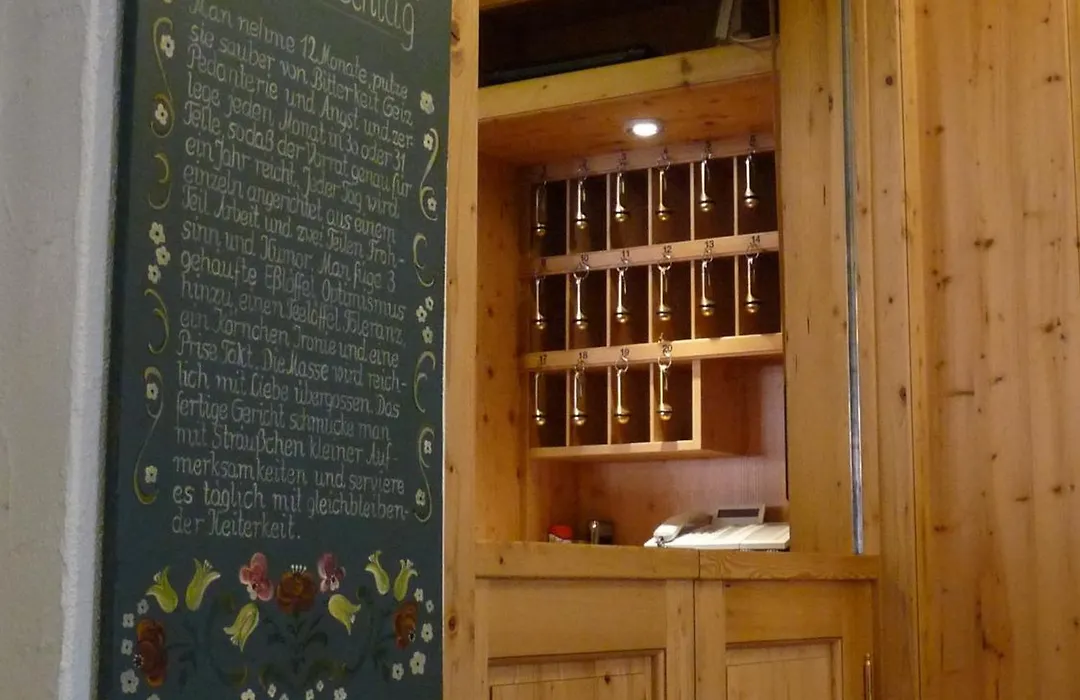 schlag
Man nehme 12 Monate, putze
sie sauber von Bitterkeit Geiz
Pedanterie und Angst und zer-
lege jeden Monat in 30 oder 31
Teile, sodaß der Vorrat genau für
ein Jahr reicht. Jeder Tag wird
einzeln angerichtet aus einem
Teil Arbeit und zwei Teilen Froh-
sinn und Humor. Man füge 3
gehäufte Eßlöffel Optimismus
hinzu, einen Teelöffel Toleranz,
ein Körnchen Ironie und eine
Prise Takt. Die Masse wird reich-
lich mit Liebe übergossen. Das
fertige Gericht schmücke man
mit Sträußchen kleiner Auf-
merksamkeiten und serviere
es täglich mit gleichbleiben-
der Heiterkeit.
10 11 12 13 14
17 18 19 20